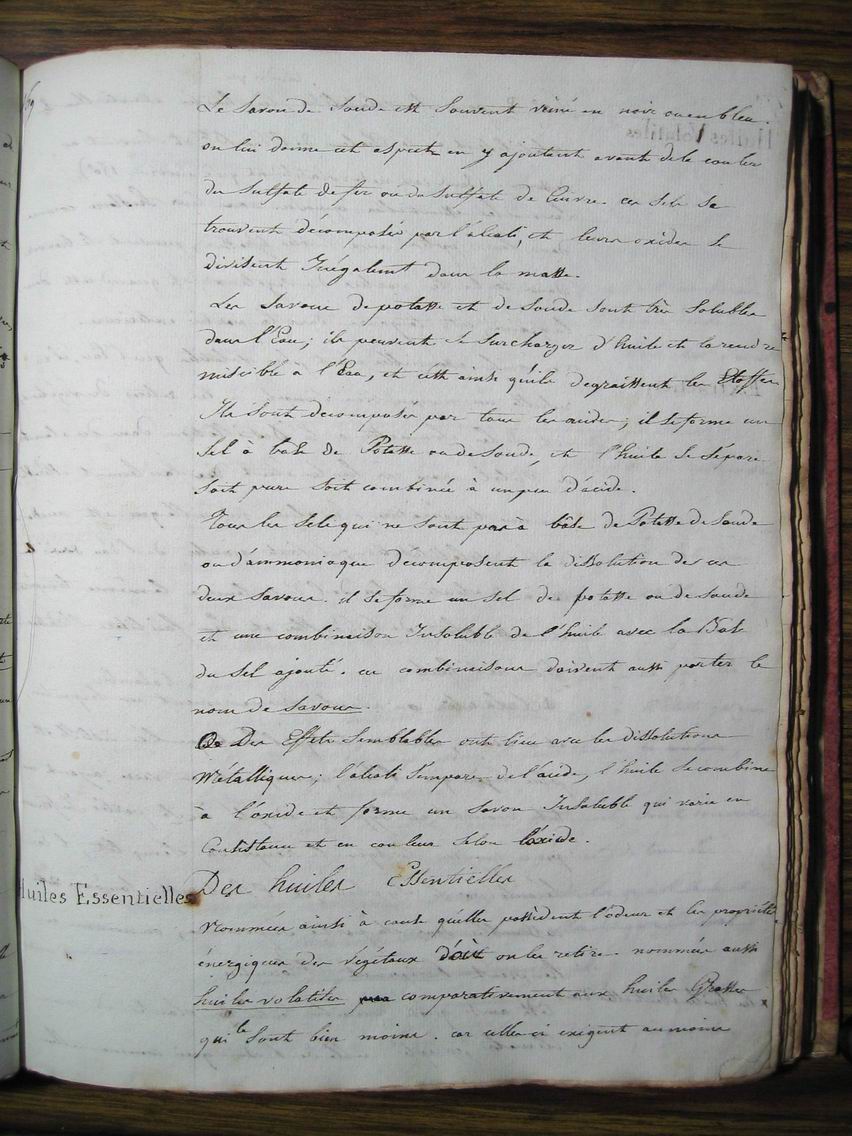 Le Savon de Soude est Souvent veiné en noir ou en bleu.
on lui donne cet aspect en y ajoutant avant de le couler
du Sulfate de fer ou du Sulfate de Cuivre. ces Sels se
trouvent décomposés par l'alcali, et leurs oxides se
divisent Irégalemt dans la masse.
Les Savons de potasse et de Soude Sont très Solubles
dans l'Eau; ils peuvent se Surcharger d'huile et la rendre
miscible à l'Eau, et cest ainsi qu'ils degraissent les Etoffes
Ils Sont décomposés par tous les acides; il se forme un
Sel à base de Potasse ou de Soude, et l'huile Se Sépare
Soit pure Soit combinée à un peu d'acide.
Tous les Sels qui ne Sont pas à bâse de Potasse de Soude
ou d'ammoniaque decomposent la dissolution de ces
deux Savons. il se forme un Sel de potasse ou de Soude
et une combinaison Insoluble de l'huile avec la Base
du Sel ajouté. ces combinaisons doivent aussi porter le
nom de Savons.
Des Effets Semblables ont lieu avec les dissolutions
Métalliques; l'alcali S'empare de l'acide, l'huile Se combine
à l'oxide et forme un Savon Insoluble qui varie en
Consistance et en couleur Selon l'oxide.
Huiles Essentielles
Des huiles Essentielles
Nommées ainsi à cause qu'elles possèdent l'odeur et les propriétés
énergiques des végétaux d'où on les retire. nommées aussi
huiles volatiles comparativement aux huiles Grasses
qui le Sont bien moins. car celles-ci exigent au moins
Huiles Volatiles